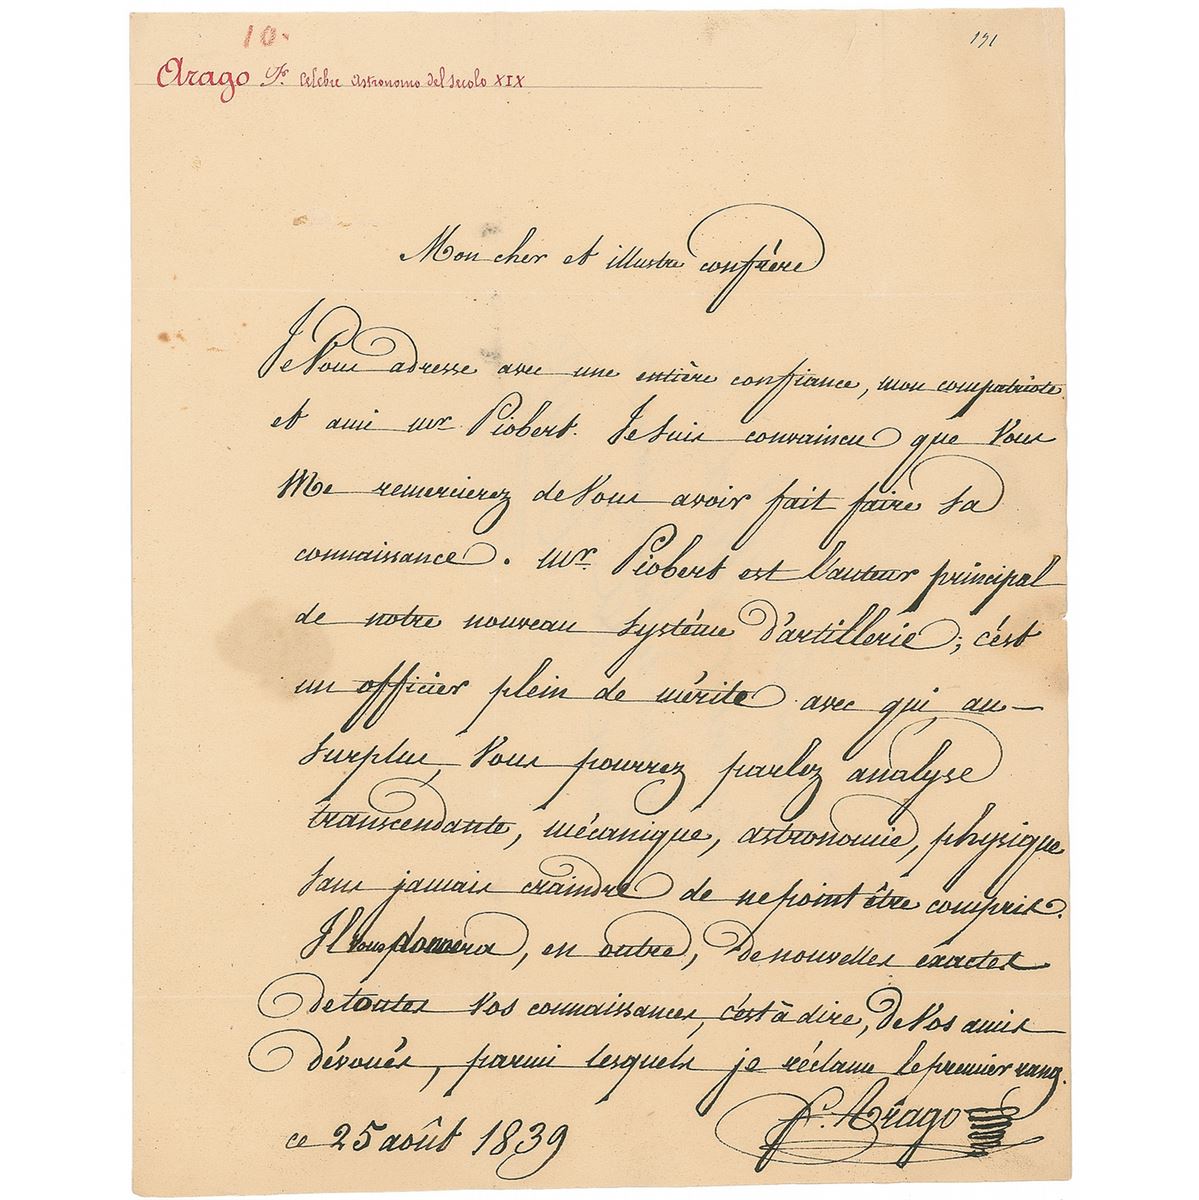 10.
191
Arago Fs. Celebre Astronomo del Secolo XIX
Mon cher et illustre confrère
Je Vous adresse avec une entière confiance, mon compatriote
et ami mr. Piobert. Je suis convaincu que Vous
Me remercierez de Vous avoir fait faire sa
connaissance. Mr. Piobert est l'auteur principal
de notre nouveau système d'artillerie; c'est
un officier plein de mérite avec qui au-
surplus, Vous pourrez parlez analyse
transcendante, mécanique, astronomie, physique
sans jamais craindre de ne point être compris.
Il vous donnera, en outre, de nouvelles exactes
de toutes Vos connaissances, c'est à dire, de Vos amis
dévoués, parmi lesquels je réclame le premier rang.
F. Arago
ce 25 août 1839